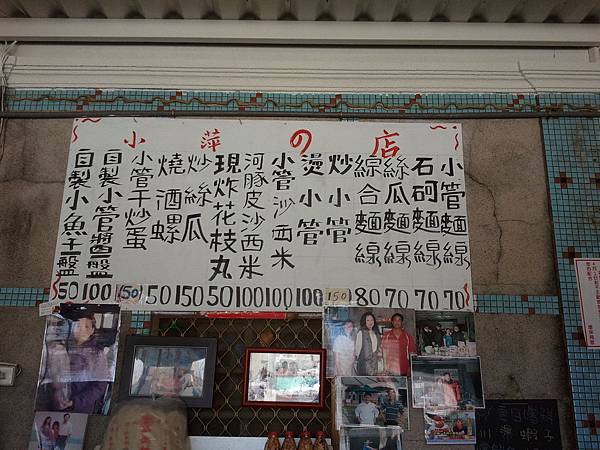 小萍の店
小管麵線 70
石砢麵線 70
絲瓜麵線 70
綜合麵線 80
炒小管 150
燙小管 100
小管沙西米 100
河豚皮沙西米 100
現炸花枝丸 50
炒絲瓜 150
燒酒螺 50
小管干炒蛋 150
自製小管醬一盤 100
自製小魚干一盤 50